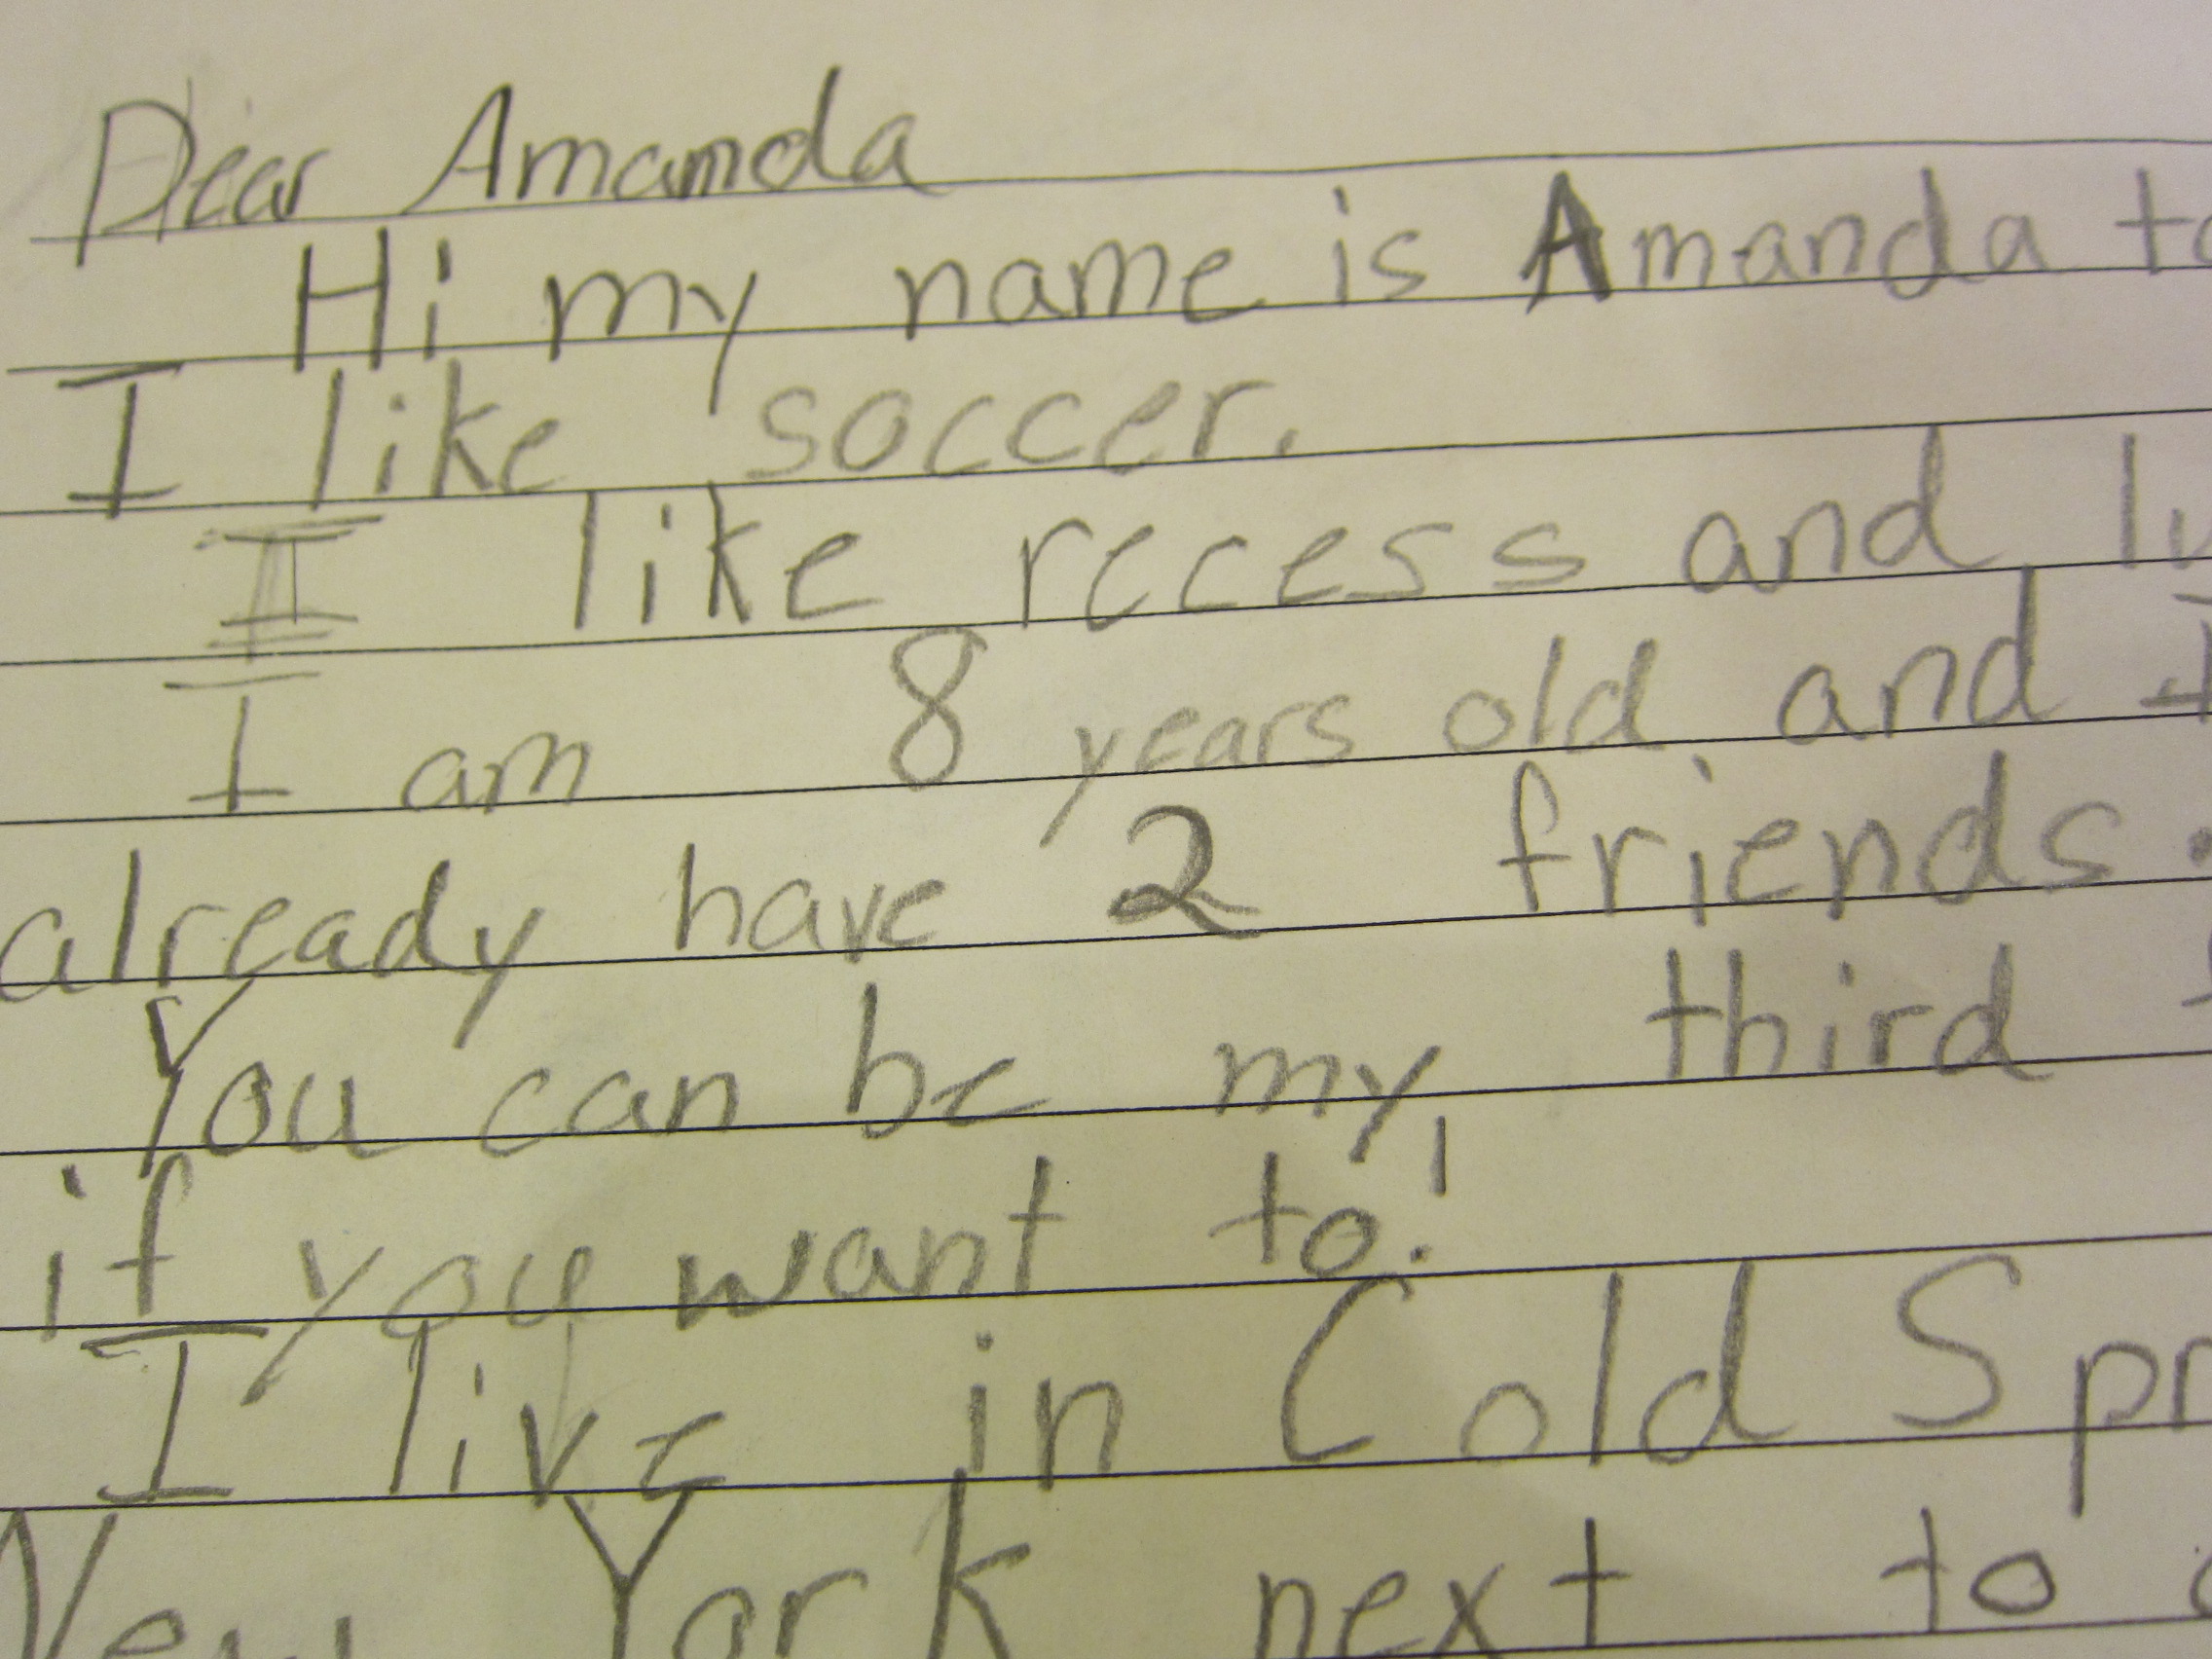 Dear Amanda
Hi my name is Amanda
I like soccer.
I like recess and
I am 8 years old and I
already have 2 friends.
You can be my third
if you want to!
I live in Cold
New York next to